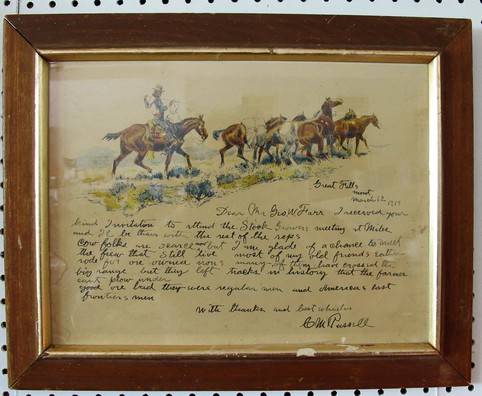 Great Falls
Mont
March 12 1917
Dear Mr Geo W Farr I received your
kind Invitation to attend the Stock Growers meeting at Miles
and Il be thair with the rest of the reps
Cow folks are scarce now but I m glade of a chance to meet
the few that still live most of my old friends eather
rode for ore owned irons many of them have crossed the
big range but they left tracks in history that the farmer
cant plow under
good ore bad they were regular men and Americas last
frontiers men
With thanks and best wishes
C M Russell